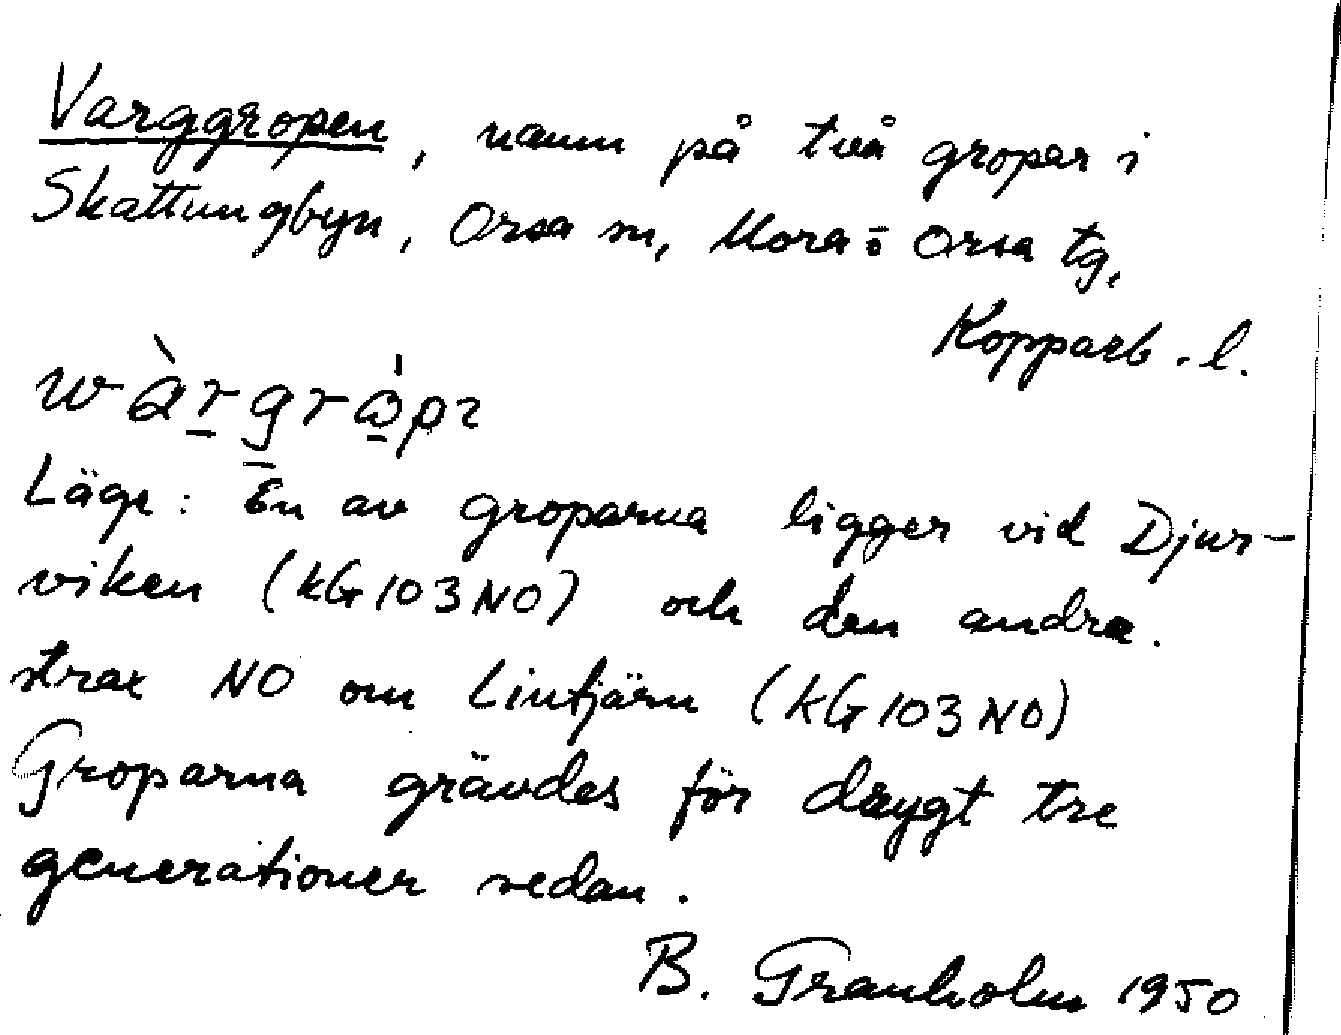 Varggropen, namn på två gropar i
Skattungbyn, Orsa sn, Mora o Orsa tg,
Kopparb. l.
Läge: En av groparna ligger vid Djur-
viken (KG103NO) och den andra.
strax NO om Lintjärn (KG103NO)
Groparna grävdes för drygt tre
generationer sedan.
B. Granholm 1950